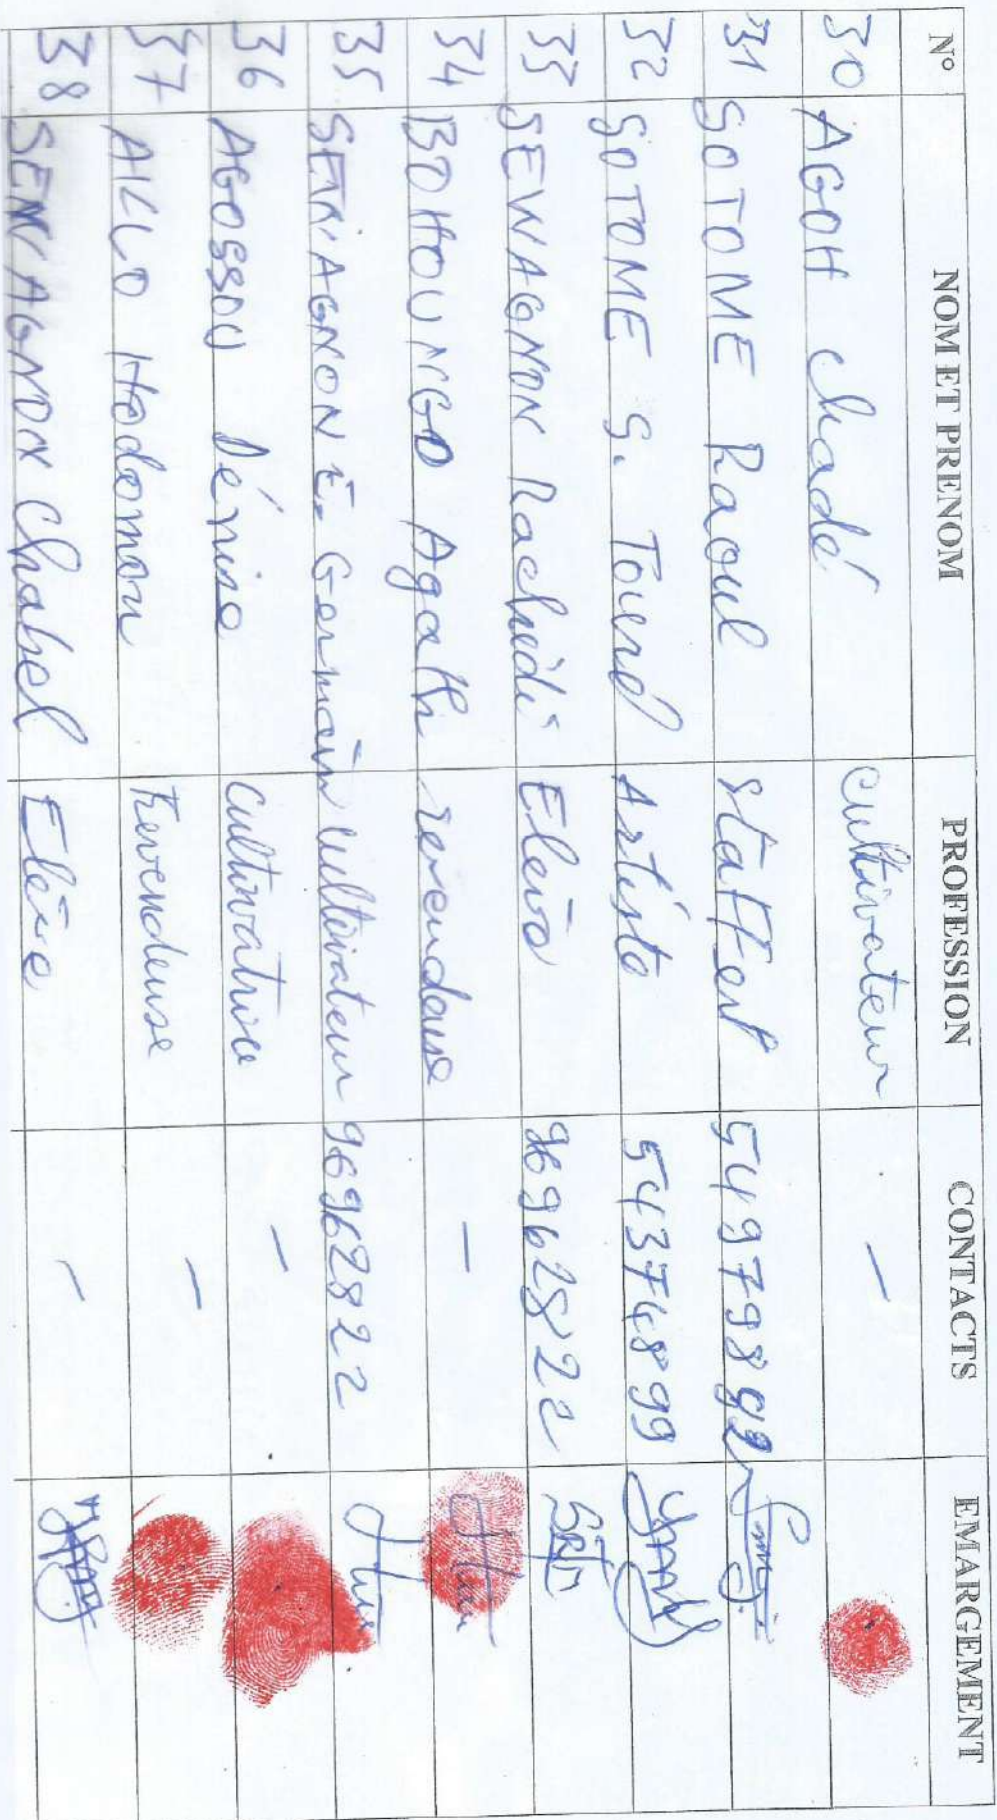 N° NOM ET PRENOM PROFESSION CONTACTS EMARGEMENT
30 AGOH Chadé Cultivateur —
31 SOTOME Raoul Staffeur 54979892
32 SOTOME S. Artiste 54374899
33 SEWAGNON Rachidi Elève 96962822
34 BOHOUNGO Agathe revendeuse —
35 E. Germain Cultivateur 96962822
36 AGOSSOU Dénise Cultivatrice —
37 AKLO Hodonou Revendeuse —
38 SENWAGNON Chabel Elève —